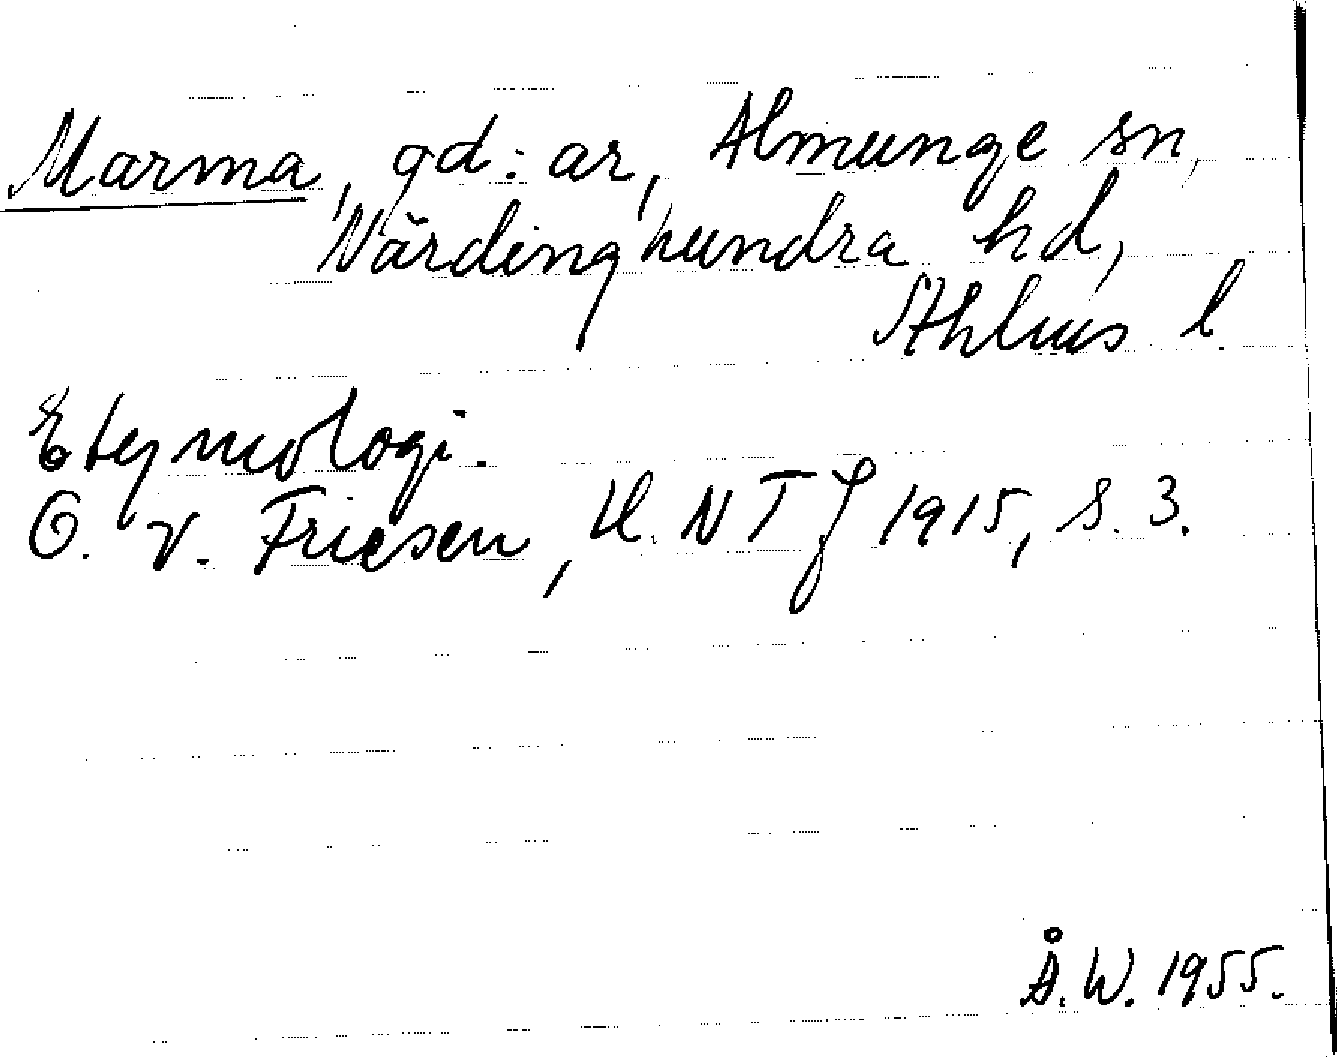 Marma, gd:ar, Almunge sn,
Närdinghundra hd,
Sthlms l.
Etymologi.
O. v. Friesen, U.N T f 1915, s. 3.
Å.W. 1955.